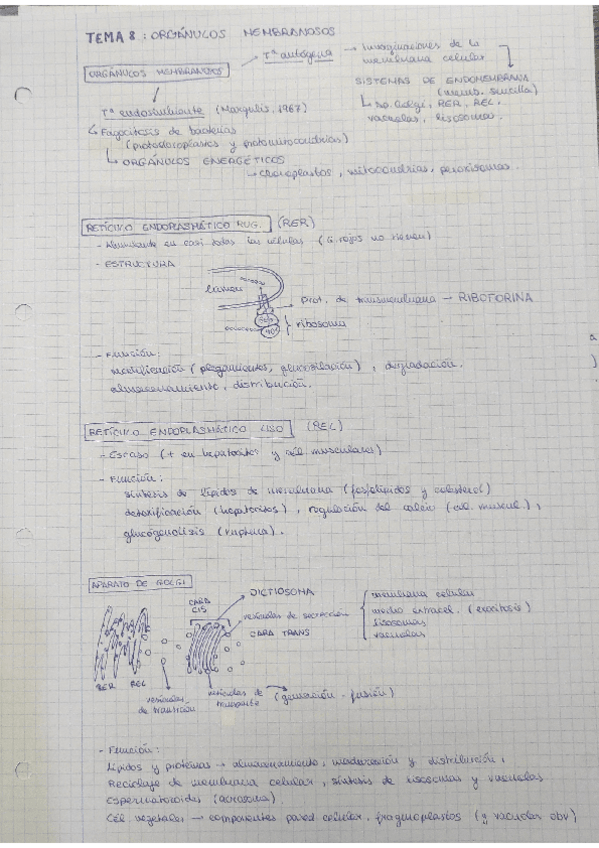 TEMA 8: ORGÁNULOS MEMBRANOSOS
ORGÁNULOS MEMBRANOSOS
Tª autógena → Invaginaciones de la
membrana celular
SISTEMAS DE ENDOMEMBRANA
(memb. sencilla)
Ap. Golgi, RER, REL,
vacuolas, lisosomas.
Tª endosimbionte (Margulis, 1967)
Fagocitosis de bacterias
(protocloroplastos y protomitocondrias)
ORGÁNULOS ENERGÉTICOS
Cloroplastos, mitocondrias, peroxisomas.
RETÍCULO ENDOPLASMÁTICO RUG. (RER)
- Abundante en casi todas las células (G. rojos no tienen)
- ESTRUCTURA
lumen
prot. de transmembrana - RIBOFORINA
ribosoma
- Función:
modificación (plegamientos, glucosilación), degradación.
almacenamiento, distribución.
RETÍCULO ENDOPLASMÁTICO LISO (REL)
- Escaso (+ en hepatocitos y cél musculares)
- Función:
síntesis de lípidos de membrana (fosfolípidos y colesterol)
detoxificación (hepatocitos), regulación del calcio (cél. muscul.),
glucogenolisis (ruptura).
APARATO DE GOLGI
CARA
CIS
DICTIOSOMA
vesículas de secreción
CARA TRANS
membrana celular
medio extracel. (exocitosis)
lisosomas
vacuolas
RER REL
vesículas
de transición
vesículas de
transporte (gemación - fusión)
- Función:
Lípidos y proteínas → almacenamiento, maduración y distribución,
Reciclaje de membrana celular, síntesis de lisosomas y vacuolas
espermatozoides (acrosoma)
Cél vegetales → componentes pared celular, fragmoplastos (y vacuolas obv)